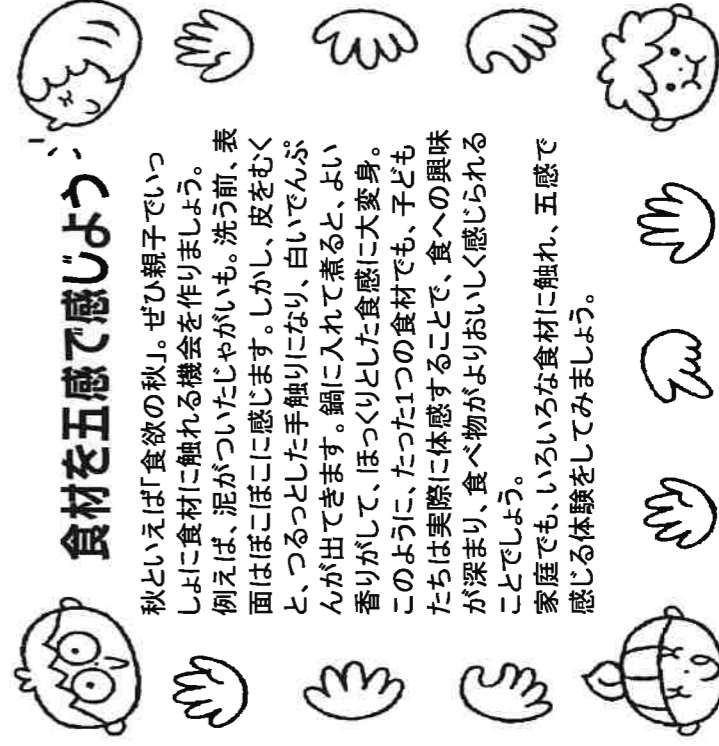 食材を五感で感じよう
秋といえば「食欲の秋」。ぜひ親子でいっ
しょに食材に触れる機会を作りましょう。
例えば、泥がついたじゃがいも。洗う前、表
面はぼこぼこに感じます。しかし、皮をむく
と、つるっとした手触りになり、白いでんぷ
んが出てきます。鍋に入れて煮ると、よい
香りがして、ほっくりとした食感に大変身。
このように、たった1つの食材でも、子ども
たちは実際に体感することで、食への興味
が深まり、食べ物がよりおいしく感じられる
ことでしょう。
家庭でも、いろいろな食材に触れ、五感で
感じる体験をしてみましょう。